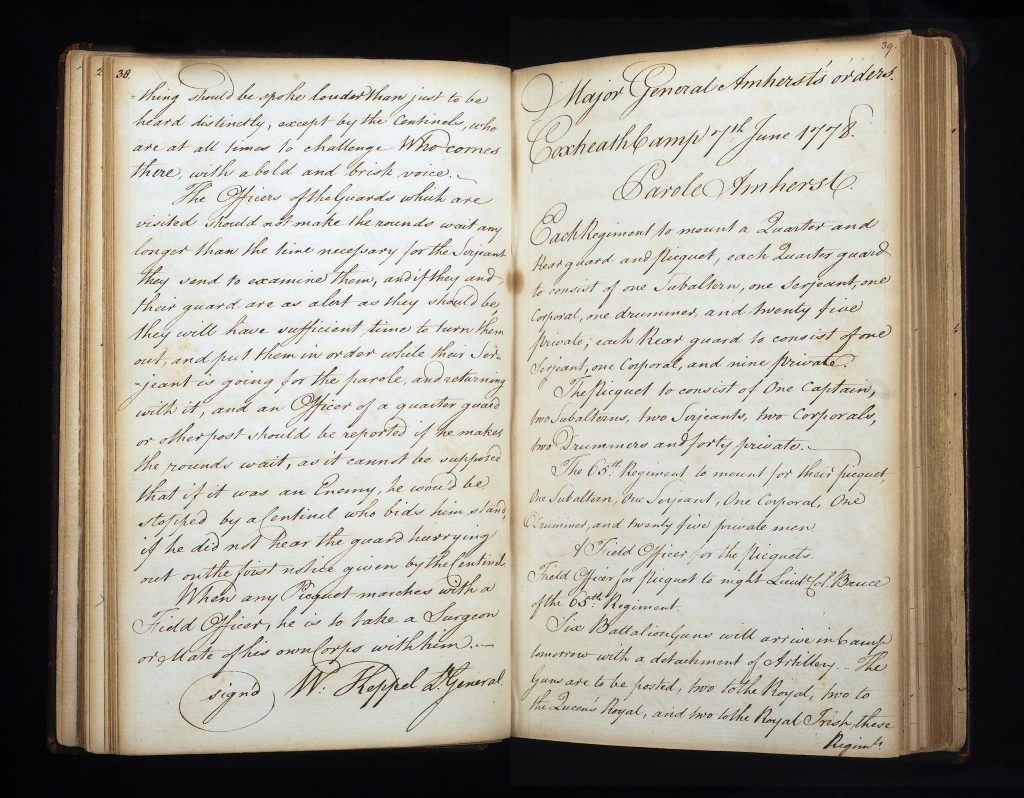 38.
-thing should be spoke louder than just to be
heard distinctly, except by the Centinels, who
are at all times to challenge Who comes
there, with a bold and brisk voice.
The Officers of the Guards which are
visited should not make the rounds wait any
longer than the time necessary for the Serjeant
they send to examine them, and if they and
their guard are as alert as they should be,
they will have sufficient time to turn them
out, and put them in order while their Ser-
-jeant is going for the parole, and returning
with it, and an Officer of a quarter guard
or other post should be reported if he makes
the rounds wait, as it cannot be supposed
that if it was an Enemy, he would be
stopped by a Centinel who bids him stand,
if he did not hear the guard hurrying
out on the first notice given by the Centinel.
When any Picquet marches with a
Field Officer, he is to take a Surgeon
or Mate of his own Corps with him.
signd Wm: Keppel Lt. General
39.
Major General Amherst's orders.
Coxheath Camp 7th June 1778.
Parole Amherst.
Each Regiment to mount a Quarter and
Rear guard and Picquet, each Quarter guard
to consist of one Subaltern, one Serjeant, one
Corporal, one drummer, and twenty five
private; each Rear guard to consist of one
Serjeant, one Corporal, and nine private.
The Picquet to consist of One Captain,
two Subalterns, two Serjeants, two Corporals,
two Drummers and forty private.
The 65th Regiment to mount for their picquet,
One Subaltern, One Serjeant, One Corporal, One
Drummer, and twenty five private men
A Field Officer for the Picquets.
Field Officer for picquet to night Lieut. Col. Bruce
of the 65th Regiment.
Six Battalion Guns will arrive in Camp
tomorrow with a detachment of Artillery. The
Guns are to be posted, two to the Royal, two to
the Queens Royal, and two to the Royal Irish these
Regimts